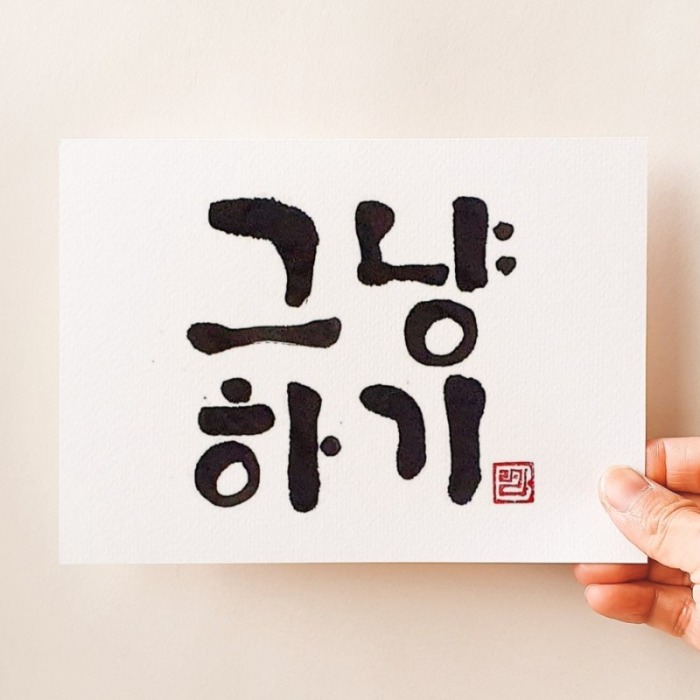 그냥
하기